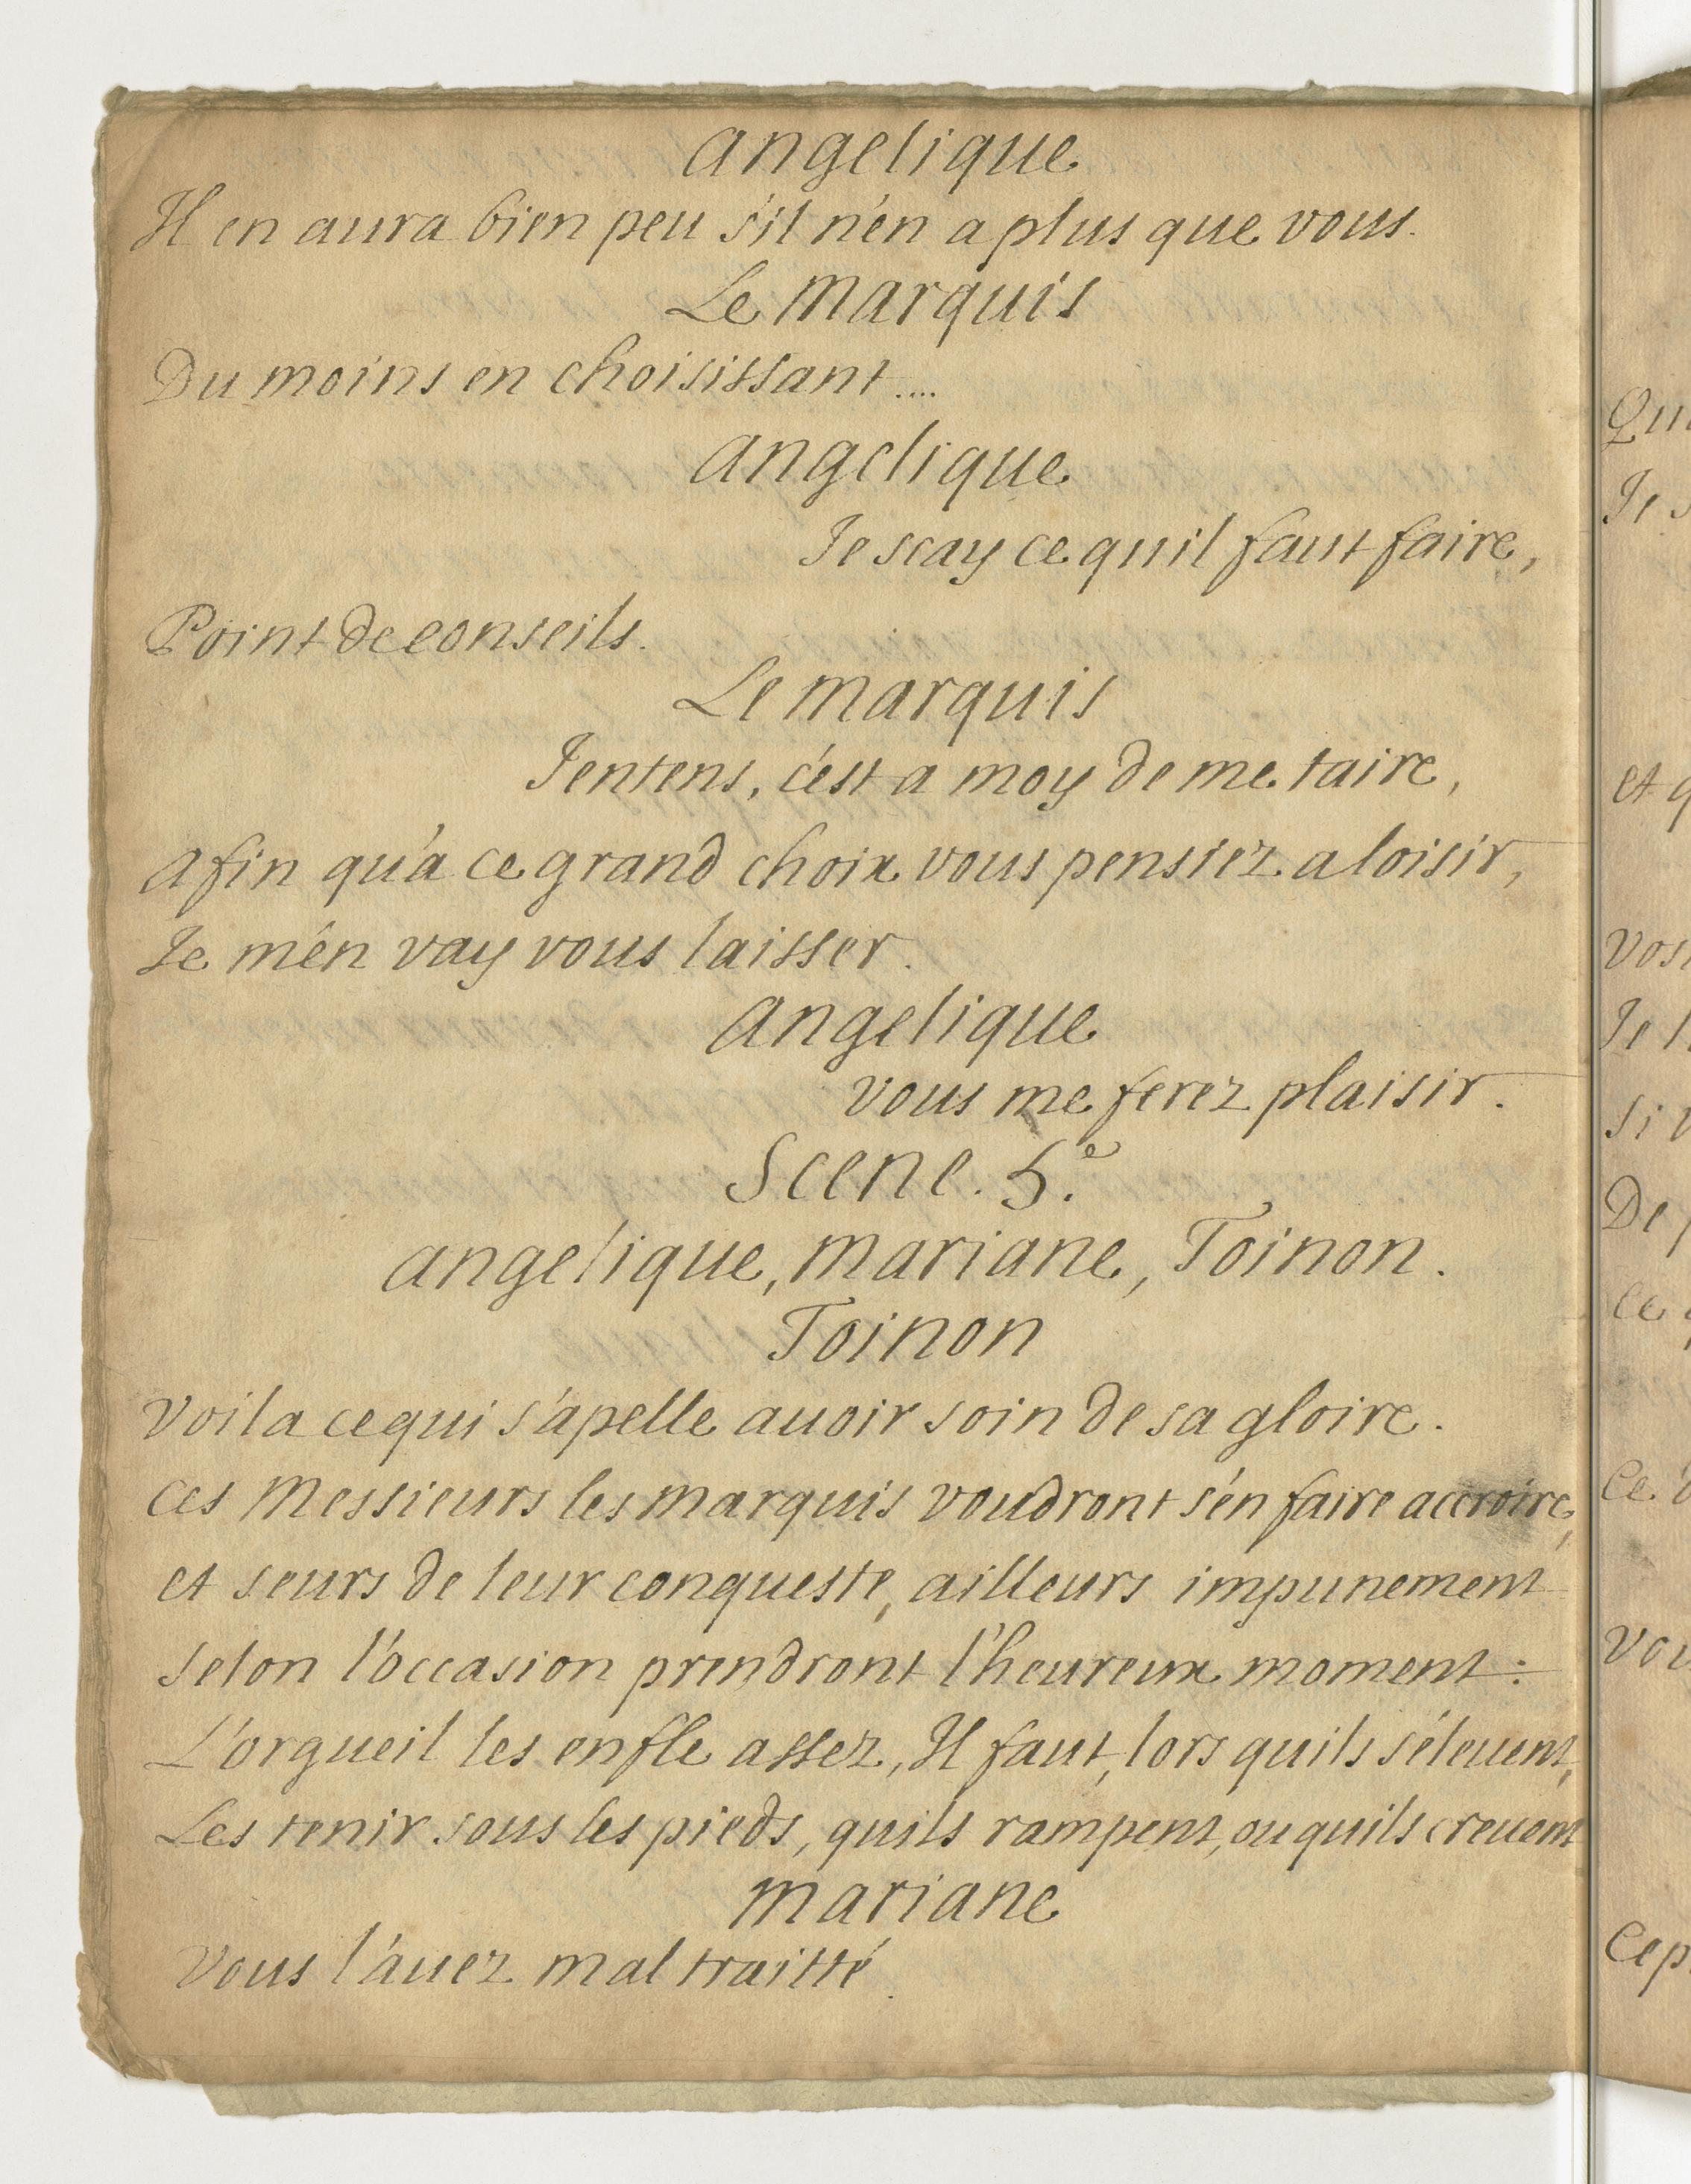 angelique
Il en aura bien peu s'il n'en a plus que vous.
Le marquis
Du moins en choisissant....
angelique
Je scay ce quil faut faire,
Point de conseils.
Le marquis
Jentens, c'est a moy de me taire,
afin qu'a ce grand choix vous pensiez a loisir,
Je m'en vay vous laisser.
angelique
vous me ferez plaisir.
Scene. 5.e
angelique, mariane, Toinon.
Toinon
voila ce qui s'apelle auoir soin de sa gloire.
ces Messieurs les marquis voudront s'en faire accroire,
et seurs de leur conqueste, ailleurs impunement
selon l'occasion prendront l'heureux moment:
L'orgueil les enfle assez, Il faut, lors quils s'eleuent,
Les tenir sous les pieds, quils rampent, ou quils creuent
mariane
vous l'auez mal traitté.
Qui
Je
et
vos
Je
si
De
ce
Ce
Cep